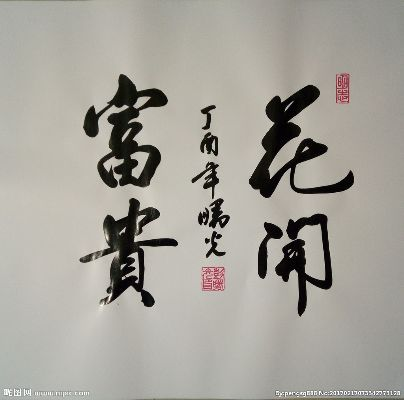 花開
丁酉年曙光
富貴
昵图网 www.nipic.com
By:pengsg888 No:20170217073342773128